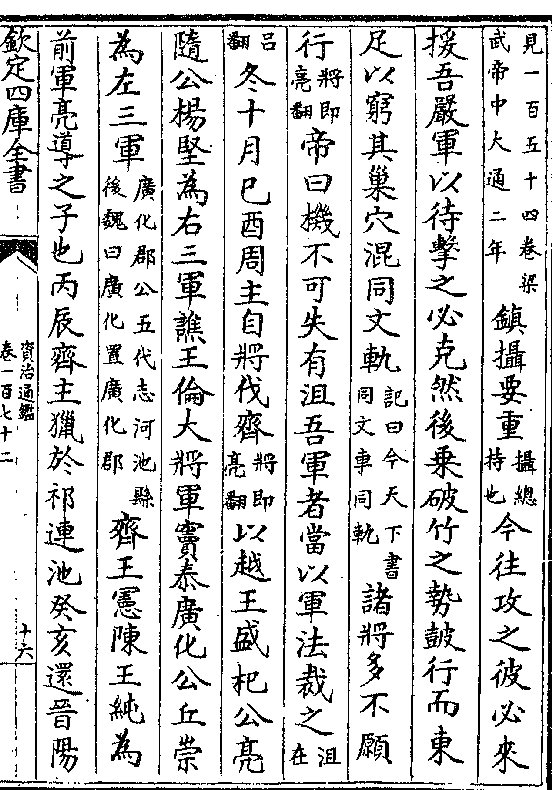 見一百五十四卷梁
武帝中大通二年
鎮攝要重
攝總
持也
今往攻之彼必來
援吾嚴軍以待擊之必克然後乗破竹之勢鼓行而東
足以窮其巢穴混同文軌
記曰今天下書
同文車同軌
諸將多不願
行
將即
亮翻
帝曰機不可失有沮吾軍者當以軍法裁之
沮
在
吕
翻
冬十月已酉周主自將伐齊
將即
亮翻
以越王盛杞公亮
隨公楊堅為右三軍譙王倫大將軍竇泰廣化公丘崇
為左三軍
廣化郡公五代志河池縣
後魏曰廣化置廣化郡
齊王憲陳王純為
前軍亮導之子也丙辰齊主獵於祁連池癸亥還晉陽
欽定四庫全書
資治通鑑
卷一百七十二
十六